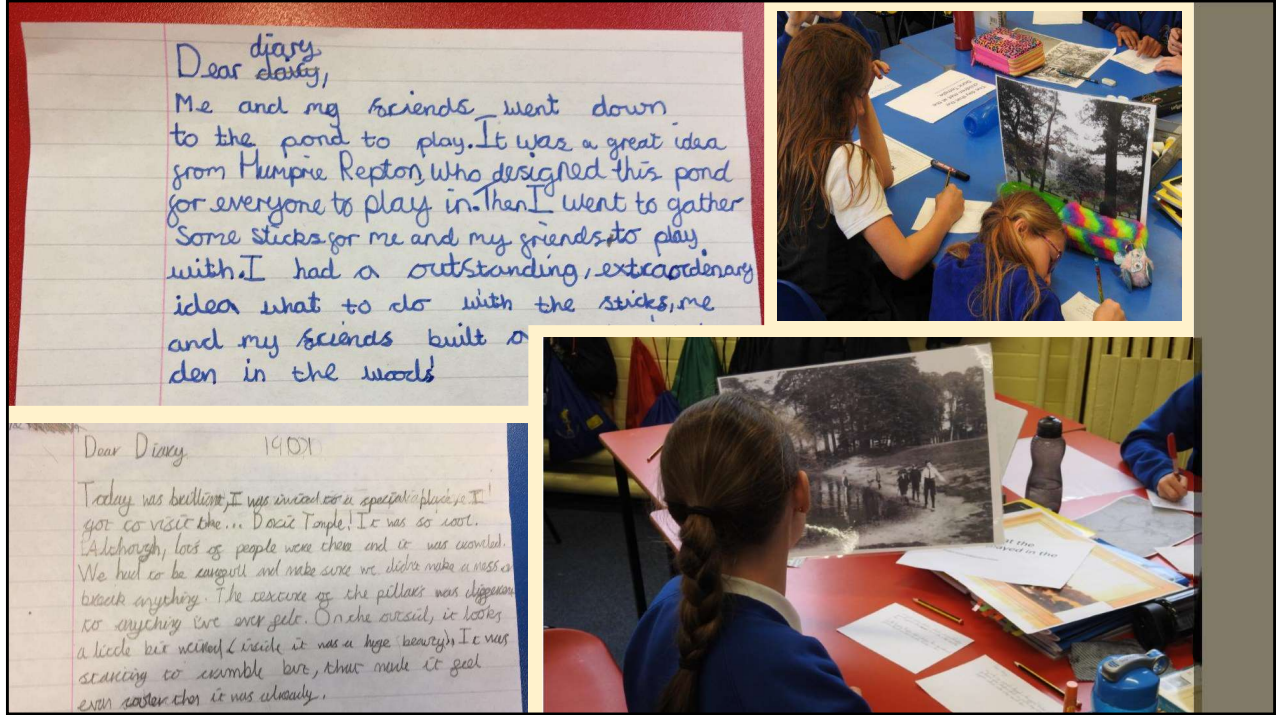 diary
Dear daity,
Me and my friends went down
to the pond to play. It was a great idea
from Humprie Repton, who designed this pond
for everyone to play in. Then I went to gather
Some sticks for me and my friends, to play
with. I had a outstanding, extraordenary
idea what to do with the sticks, me
and my friends built a
den in the woods!
Dear Diary 1901
Today was brilliant, I was invited to a special place, I
got to visit the... Doric Temple! It was so cool.
Although, lots of people were there and it was crowded.
We had to be carefull and make sure we didn't make a mess or
break anything. The texture of the pillars was different
to anything I've ever felt. On the outsid, it looks
a little bit weired (inside it was a huge beauty), It was
starting to crumble but, that made it feel
even cooler than it was already.
at the
ayed in the